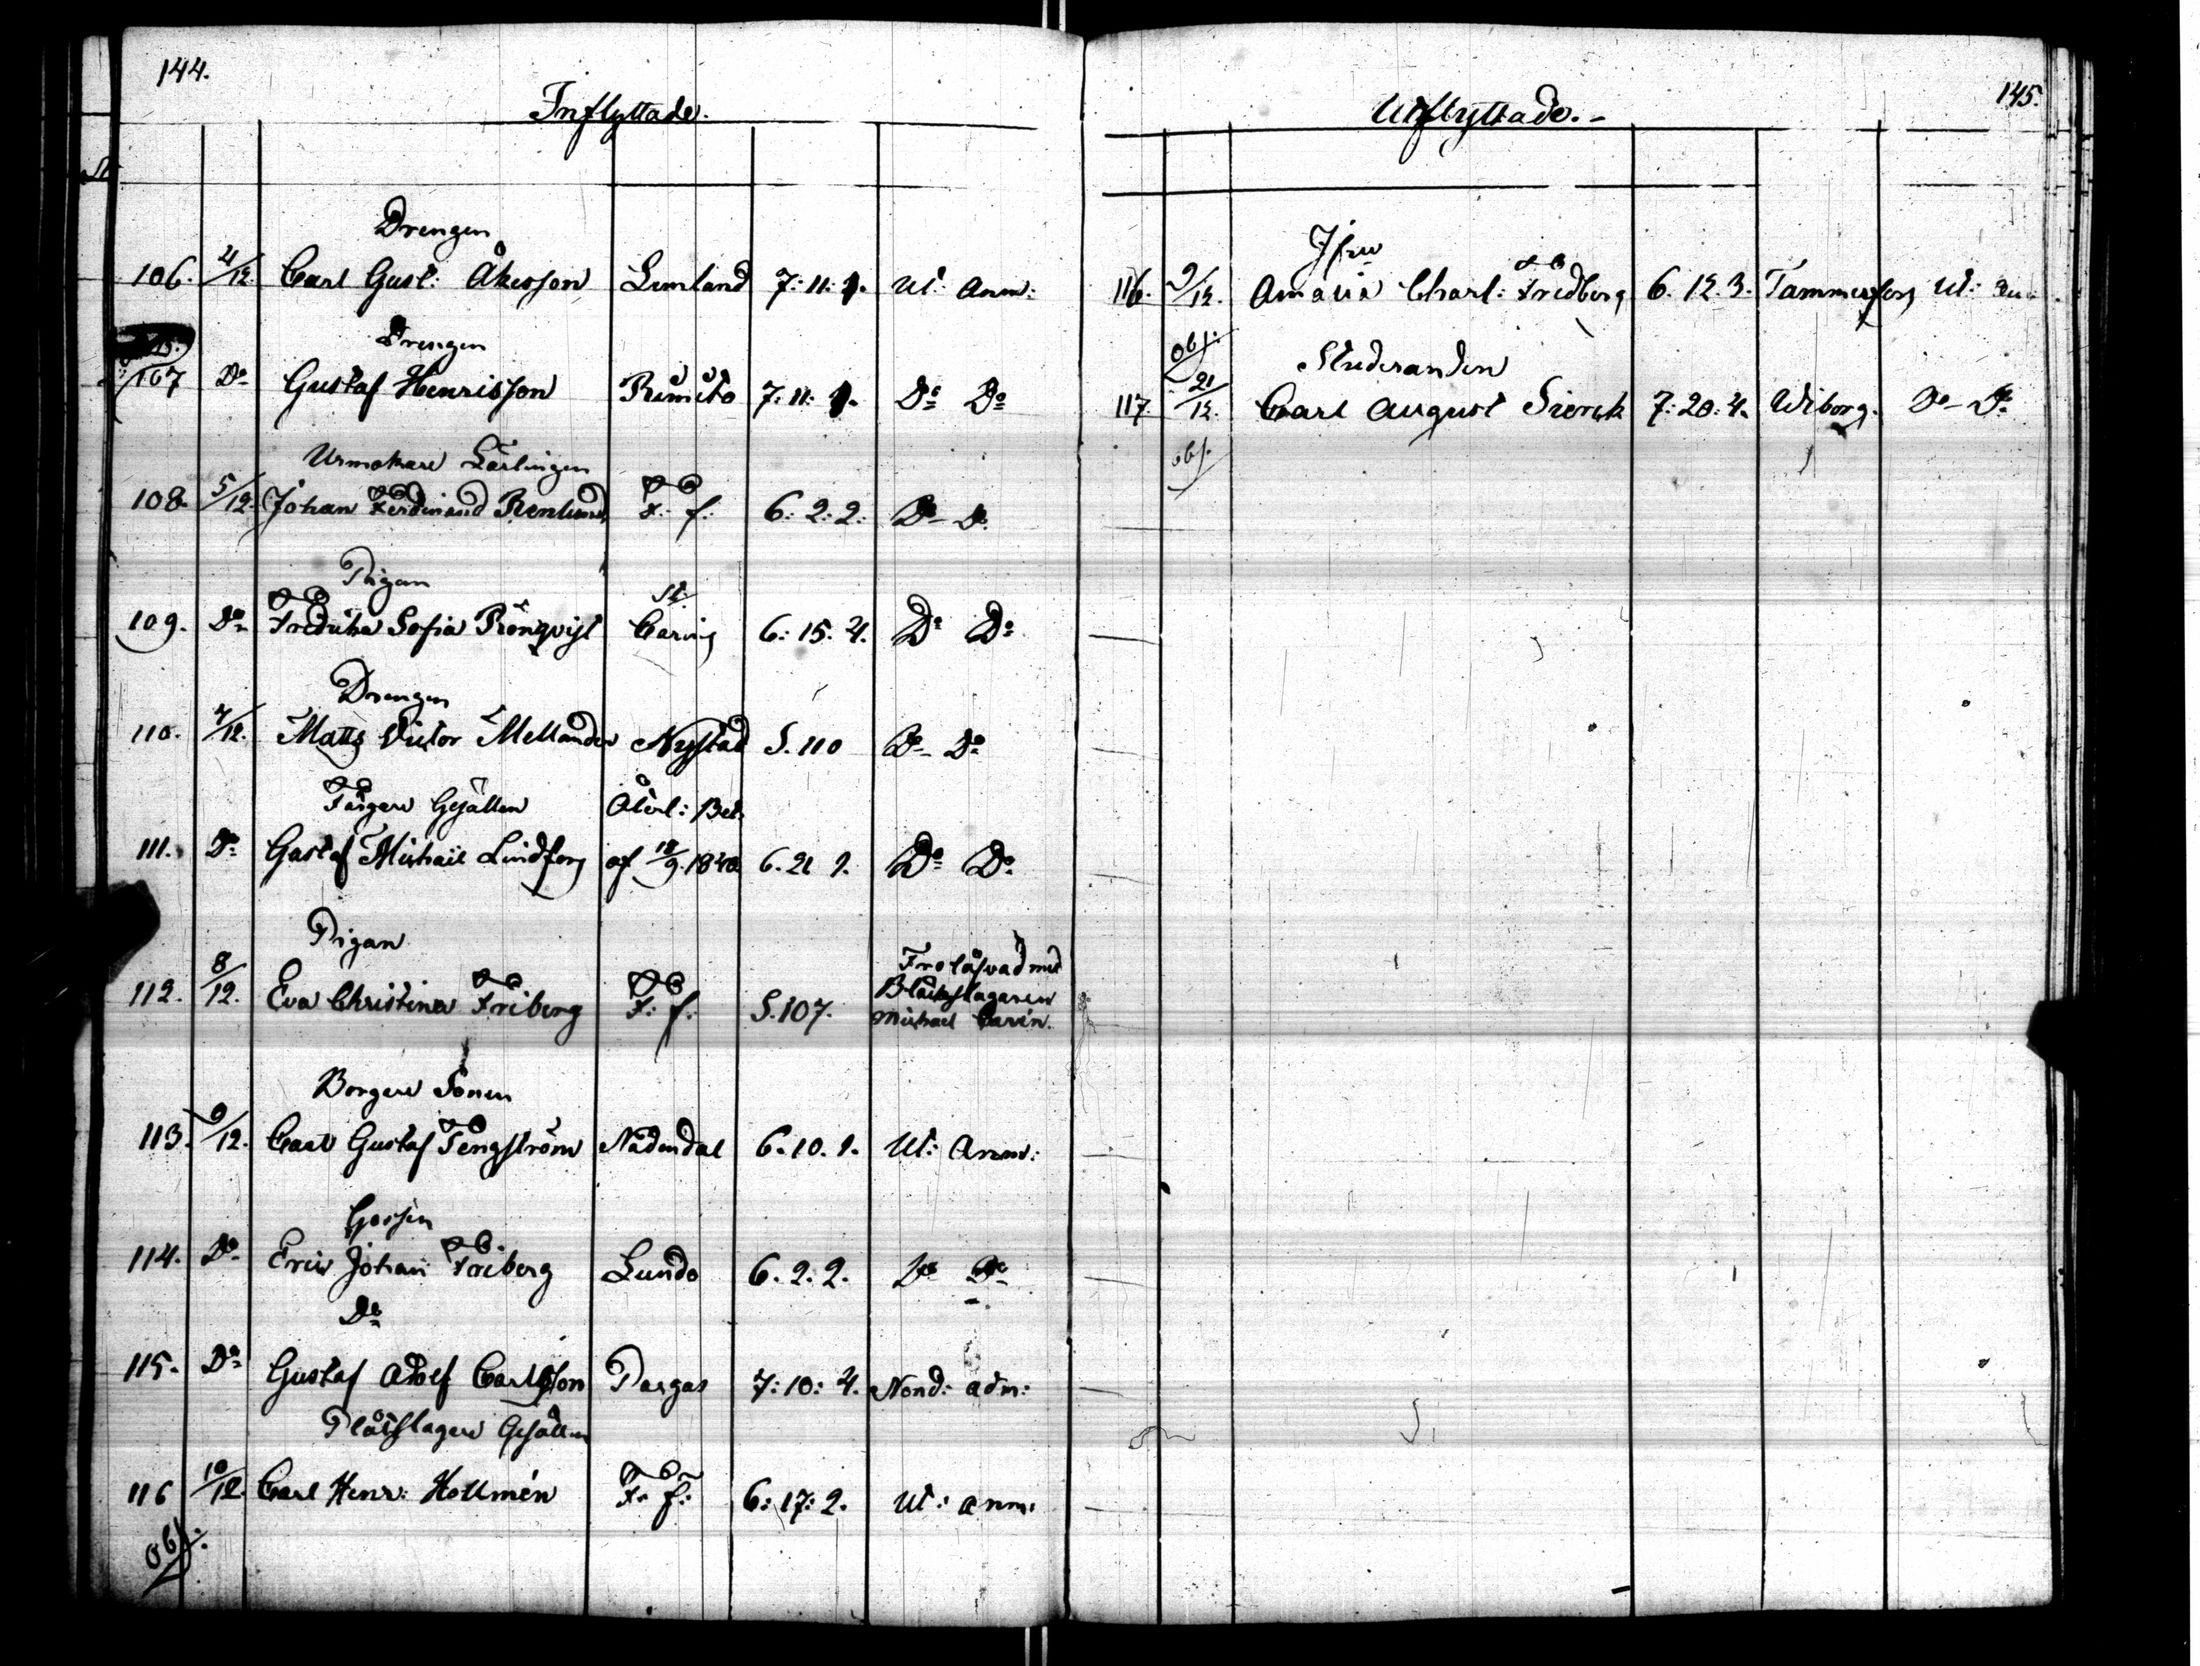 144.
Inflyttade.
Drengen
106. 4/12. Carl Gust: Åkesson Lemland 7:11:1. Ut: Anm:
Drengen
107 Do Gustaf Henrisson Rimito 7:11:1. Do Do
Urmakare Lärlingen
108. 5/12. Johan Ferdinand Renlund F: f: 6:2:2: Do - Do
Pigan St:
109. Do Fredrika Sofia Rönqvist Carins 6:15.4. Do Do
Drengen
110. 7/12. Matts Victor Mellander Nystad S.110 Do - Do
Färgare Gesällen Återl: Bet.
111. Do Gustaf Michael Lindfors af 18/9.1840. 6.21 1. Do Do
Pigan
Trolåfvad med
112. 8/12. Eva Christina Friberg F: f: S.107. Bläckslagaren
Michael Carén.
Borgare Sonen
113. 9/12. Carl Gustaf Tengström Nådendal 6.10.1. Ut: Anm:
Gossen
114. Do Eric Johan Friberg Lundo 6.2.2. Do Do
Do
115. Do Gustaf Adolf Carlsson Pargas 7:10:4. Nond: adm:
Plåtslagare Gesällen
116 10/12. Carl Henr: Hellmén F: f: 6:17:2. Ut: anm:
obs:
145.
Utflyttade.-
Jfru
116. 9/12. Amalia Charl: Fredberg 6.12.3. Tammerfors Ut:
obs:
Studeranden
117. 21/12. Carl August Sierck 7:20:4. Wiborg. Do - Do
obs: